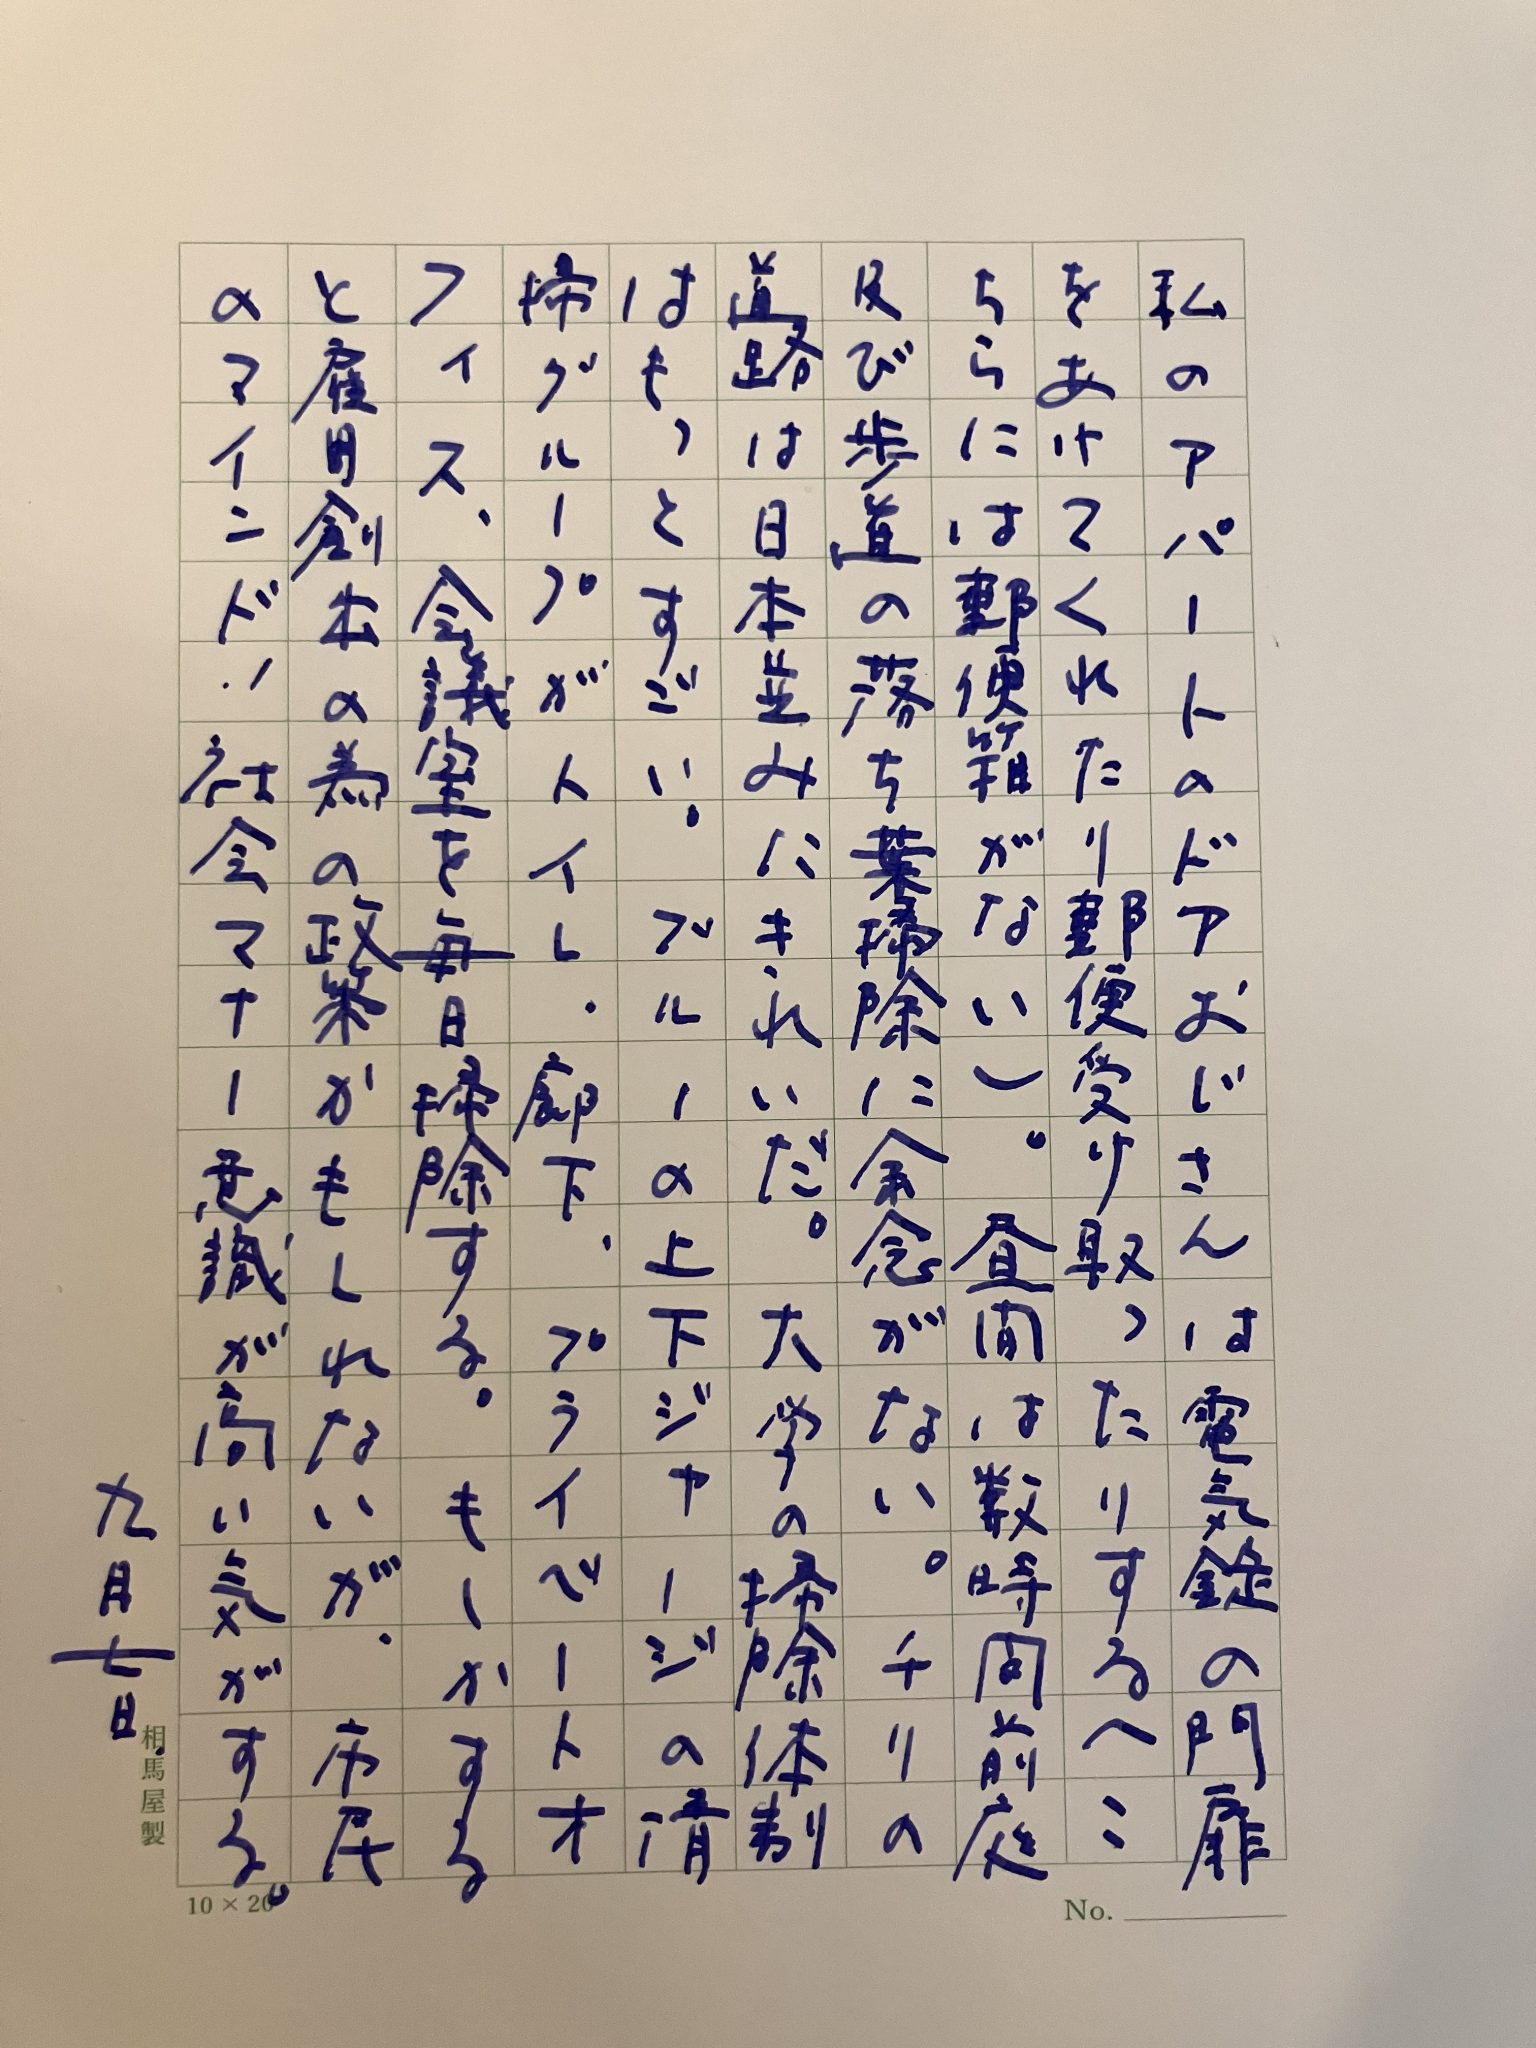 私のアパートのドアおじさんは電気錠の門扉
をあけてくれたり郵便受け取ったりする(こ
ちらには郵便箱がない)。昼間は数時間前庭
及び歩道の落ち葉掃除に余念がない。チリの
道路は日本並みにきれいだ。大学の掃除体制
はもっとすごい。ブルーの上下ジャージの清
掃グループがトイレ、廊下、プライベートオ
フィス、会議室を毎日掃除する。もしかする
と雇用創出の為の政策かもしれないが、市民
のマインド/社会マナー意識が高い気がする。
九月七日
相馬屋製
10×20
No.